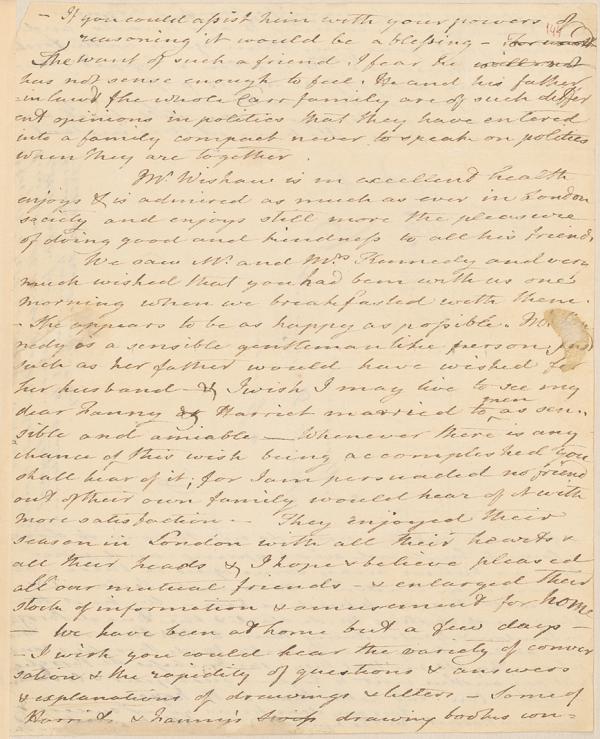 – If you could assist him with your powers of
144
reasoning it would be a blessing – For want
The want of such a friend I fear he
has not sense enough to feel. He and his father
in law & the whole Carr family are of such differ
ent opinions in politics that they have entered
into a family compact never to speak on politics
when they are together.
Mr. Wishaw is in excellent health
enjoys & is admired as much as ever in London
society and enjoys still more the pleasure
of doing good and kindness to all his friends.
We saw Mr. and Mrs Kennedy and very
much wished that you had been with us one
morning when we breakfasted with them.
– She appears to be as happy as possible.
nedy is a sensible gentlemanlike person, just
such as her father would have wished for
her husband – & I wish I may live to see my
dear Fanny & Harriet married to men as sen-
sible and amiable – Whenever there is any
chance of this wish being accomplished you
shall hear of it; for I am persuaded no friend
out of their own family would hear of it with
more satisfaction. – They enjoyed their
season in London with all their hearts &
all their heads & I hope & believe pleased
all our mutual friends – & enlarged their
stock of information & amusement for home
– We have been at home but a few days –
– I wish you could hear the variety of conver
sation & the rapidity of questions & answers
& explanations of drawings & letters – Some of
Harriet's & Fanny's Swiss drawing books con-